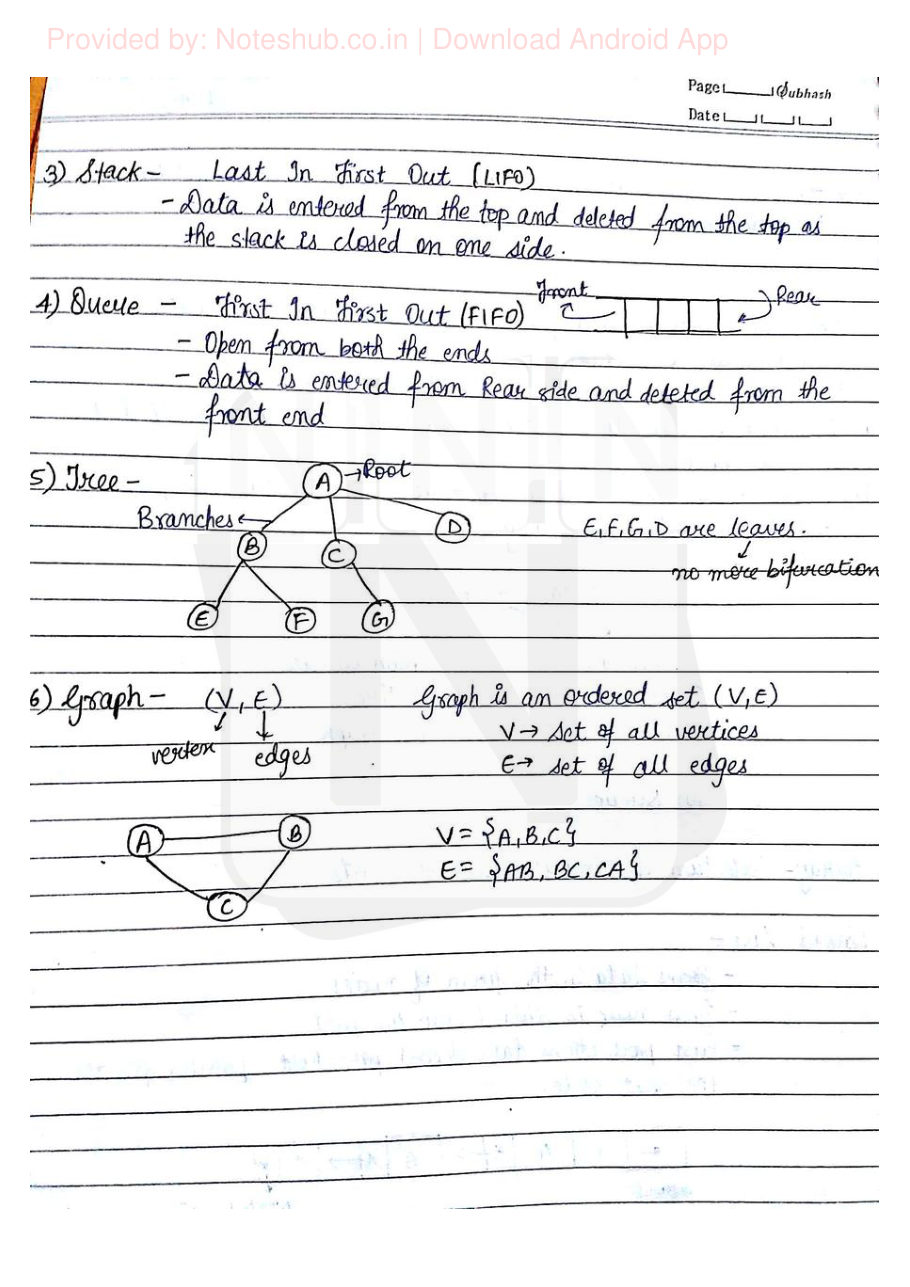 Provided by: Noteshub.co.in | Download Android App
Page Subhash
Date
3) Stack - Last In First Out (LIFO)
- Data is entered from the top and deleted from the top as
the stack is closed on one side.
4) Queue - First In First Out (FIFO) Front Rear
- Open from both the ends
- Data is entered from Rear side and deleted from the
front end
5) Tree - A → Root
Branches ← D E,F,G,D are leaves.
B C no more bifurcation
E F G
6) Graph - (V, E) Graph is an ordered set (V,E)
V → set of all vertices
vertex edges E → set of all edges
A B V = {A,B,C}
E = {AB, BC, CA}
C